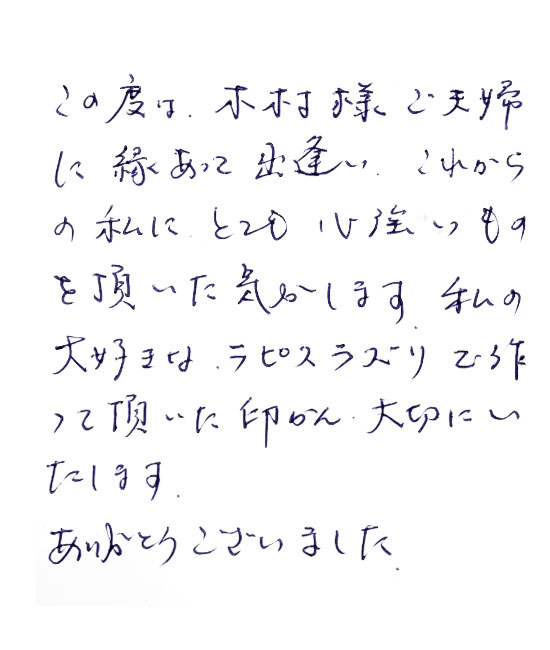 この度は、木村様ご夫婦
に縁あって出逢い、これから
の私に、とても心強いもの
を頂いた気がします。私の
大好きな、ラピスラズリで作
って頂いた印かん、大切にい
たします。
ありがとうございました。